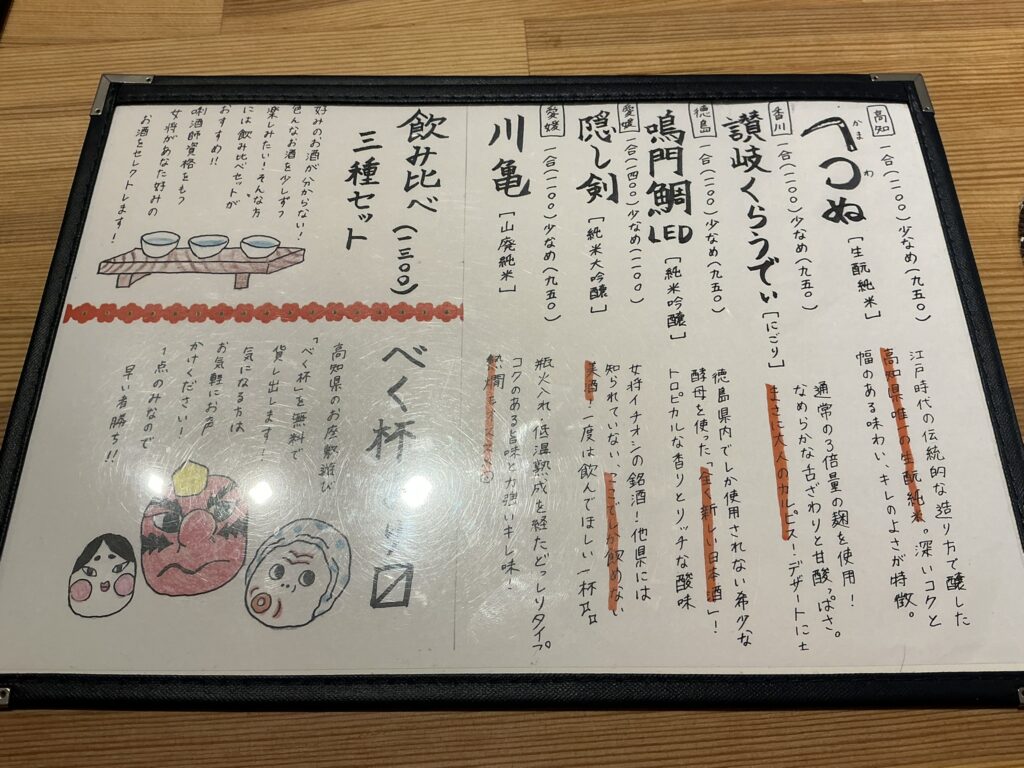 高知 一合(一一〇〇)少なめ(九五〇)
かま わ
〇ぬ [生酛純米]
江戸時代の伝統的な造り方で醸した
高知県唯一の生酛純米。深いコクと
幅のある味わい、キレのよさが特徴。
香川 一合(一一〇〇)少なめ(九五〇)
讃岐くらうでぃ [にごり]
通常の3倍量の麹を使用!
なめらかな舌ざわりと甘酸っぱさ。
まさに大人のカルピス!デザートに±
徳島 一合(一一〇〇)少なめ(九五〇)
鳴門鯛LED [純米吟醸]
徳島県内でしか使用されない希少な
酵母を使った「全く新しい日本酒」!
トロピカルな香りとリッチな酸味
愛媛 一合(一四〇〇)少なめ(一一〇〇)
隠し剣 [純米大吟醸]
女将イチオシの銘酒!他県には
知られていない、ここでしか飲めない
美酒!一度は飲んでほしい一杯
愛媛 一合(一一〇〇)少なめ(九五〇)
川亀 [山廃純米]
瓶火入れ・低温熟成を経たどっしりタイプ
コクのある旨味と力強いキレ味!
熱燗
飲み比べ(一三〇〇)
三種セット
好みのお酒が分からない!
色んなお酒を少しずつ
楽しみたい!そんな方
には飲み比べセットが
おすすめ!!
唎酒師資格をもつ
女将があなた好みの
お酒をセレクトします!
べく杯
高知県のお座敷遊び
「べく杯」を無料で
貸し出します!
気になる方は
お気軽にお声
かけください!
1点のみなので
早い者勝ち!!